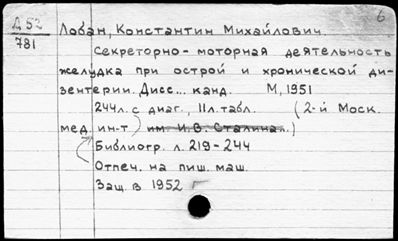 6
Д 52
781
Лобан, Константин Михайлович.
Секреторно-моторная деятельность
желудка при острой и хронической ди-
зентерии. Дисс... канд. М, 1951
244л. с диаг., 11л. табл. (2-й Моск.
мед. ин-т им. И. В. Сталина.)
Библиогр. л. 219-244
Отпеч. на пиш. маш.
Защ. в 1952 г